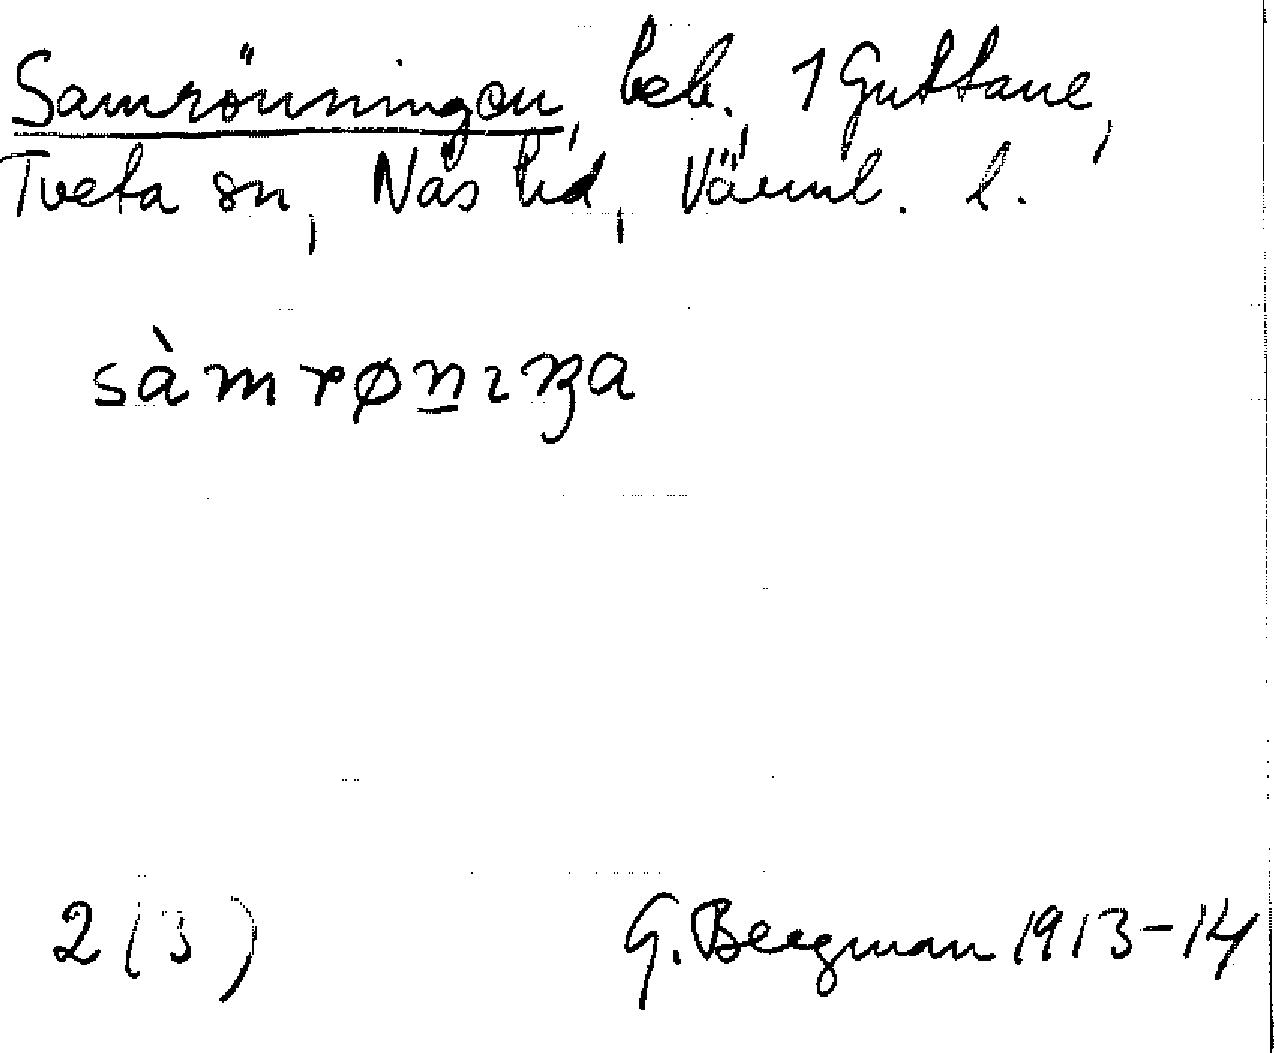 Samrönningen, beb., 1 Guttane,
Tveta sn, Näs hd, Värml. l.
sàmrøn̲ɪŋa
2 (3)
G. Bergman 1913-14